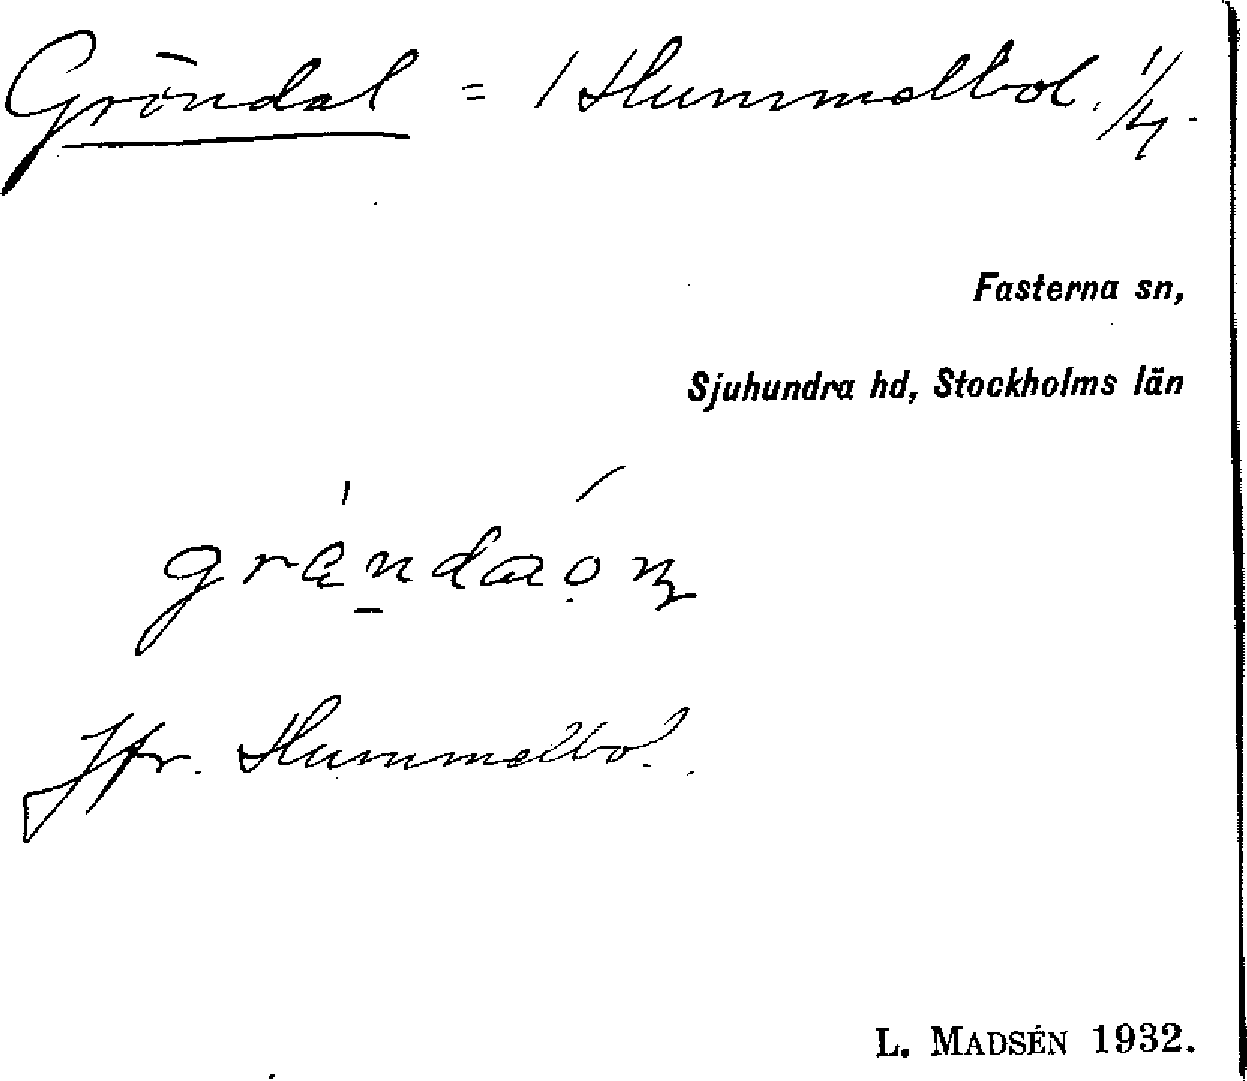 Gröndal = / Hummelbol. 1/4.
Fasterna sn,
Sjuhundra hd, Stockholms län
Jfr. Hummelbol.
L. MADSÉN 1932.